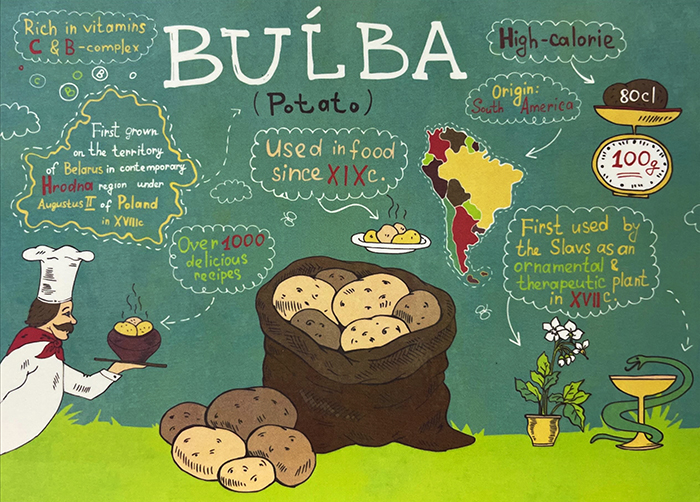 Rich in vitamins
C & B-complex
C
B
C
B
BUĹBA
(Potato)
High-calorie
80cl
100g
Origin:
South America
First grown
on the territory
of Belarus in contemporary
Hrodna region under
Augustus II of Poland
in XVIIIc
Used in food
since XIXc.
Over 1000
delicious
recipes
First used by
the Slavs as an
ornamental &
therapeutic plant
in XVIIc.